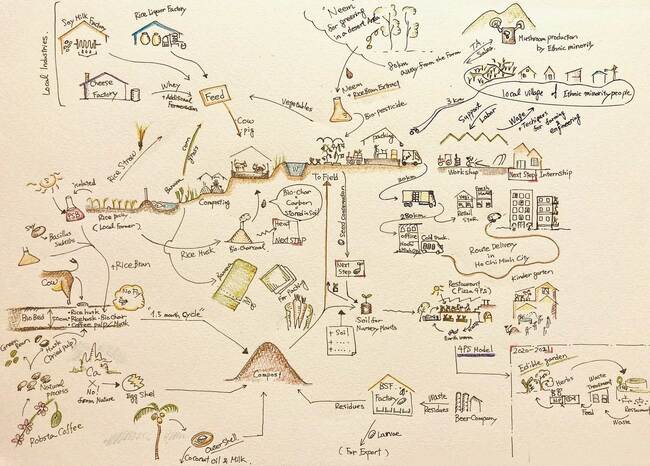 Local Industries
Soy Milk Factory
Rice Liquor Factory
Cheese
Factory
Whey
+ Additional
Fermentation
Feed
Cow
Pig
"Neem
for greening
in a desert Area"
80km
away from the Farm
Neem
+ Rice Bran Extract
Bio-pesticide
Vegetables
Mushroom production
by Ethnic minority
TA
Sales
3 km
local village of Ethnic minority people
Support
Labor
Wage
+ Techiques
for farming
& engineering
Rice Straw
Banana
Corn
grass
isolated
Basillus
Subtilis
Rice paddy
(Local Farmer)
Composting
To Field
packing
Workshop
Next Step
Internship
+ Rice Bran
Rice Husk
Bio-charcoal
Bio-char
Carbon
Stored in Soil
Heat
NEXT STEP
Seed Conservation
Next
Step
30km
280km
office
Cold Pack
Fresh
Market
Retail
Stor
Route Delivery
in
Ho Chi Minh City
Kinder garten
Cow
No Fly
Bio Bed
50cm
• Rice husk
• Rice husk • Bio-char
• Coffee pulp / Husk
1.5 month cycle"
For Packing
Soil for
Nursery Plants
+ Soil
Restaurant
(Pizza 4P's)
Earth worm
4P'S Model
2020-2021
Edible garden
Herbs
Waste
Treatment
Feed
Restaurant
Waste
Green Bean
Husk
(Dried pulp)
Natural
process
Robsta Coffee
Ca
X
No!
from Nature
Egg Shel
Compost
Coconut Oil & Milk
Outer Shell
Residues
BSF
Factory
Waste
Residues
Beer Company
Larvae
(For Export)